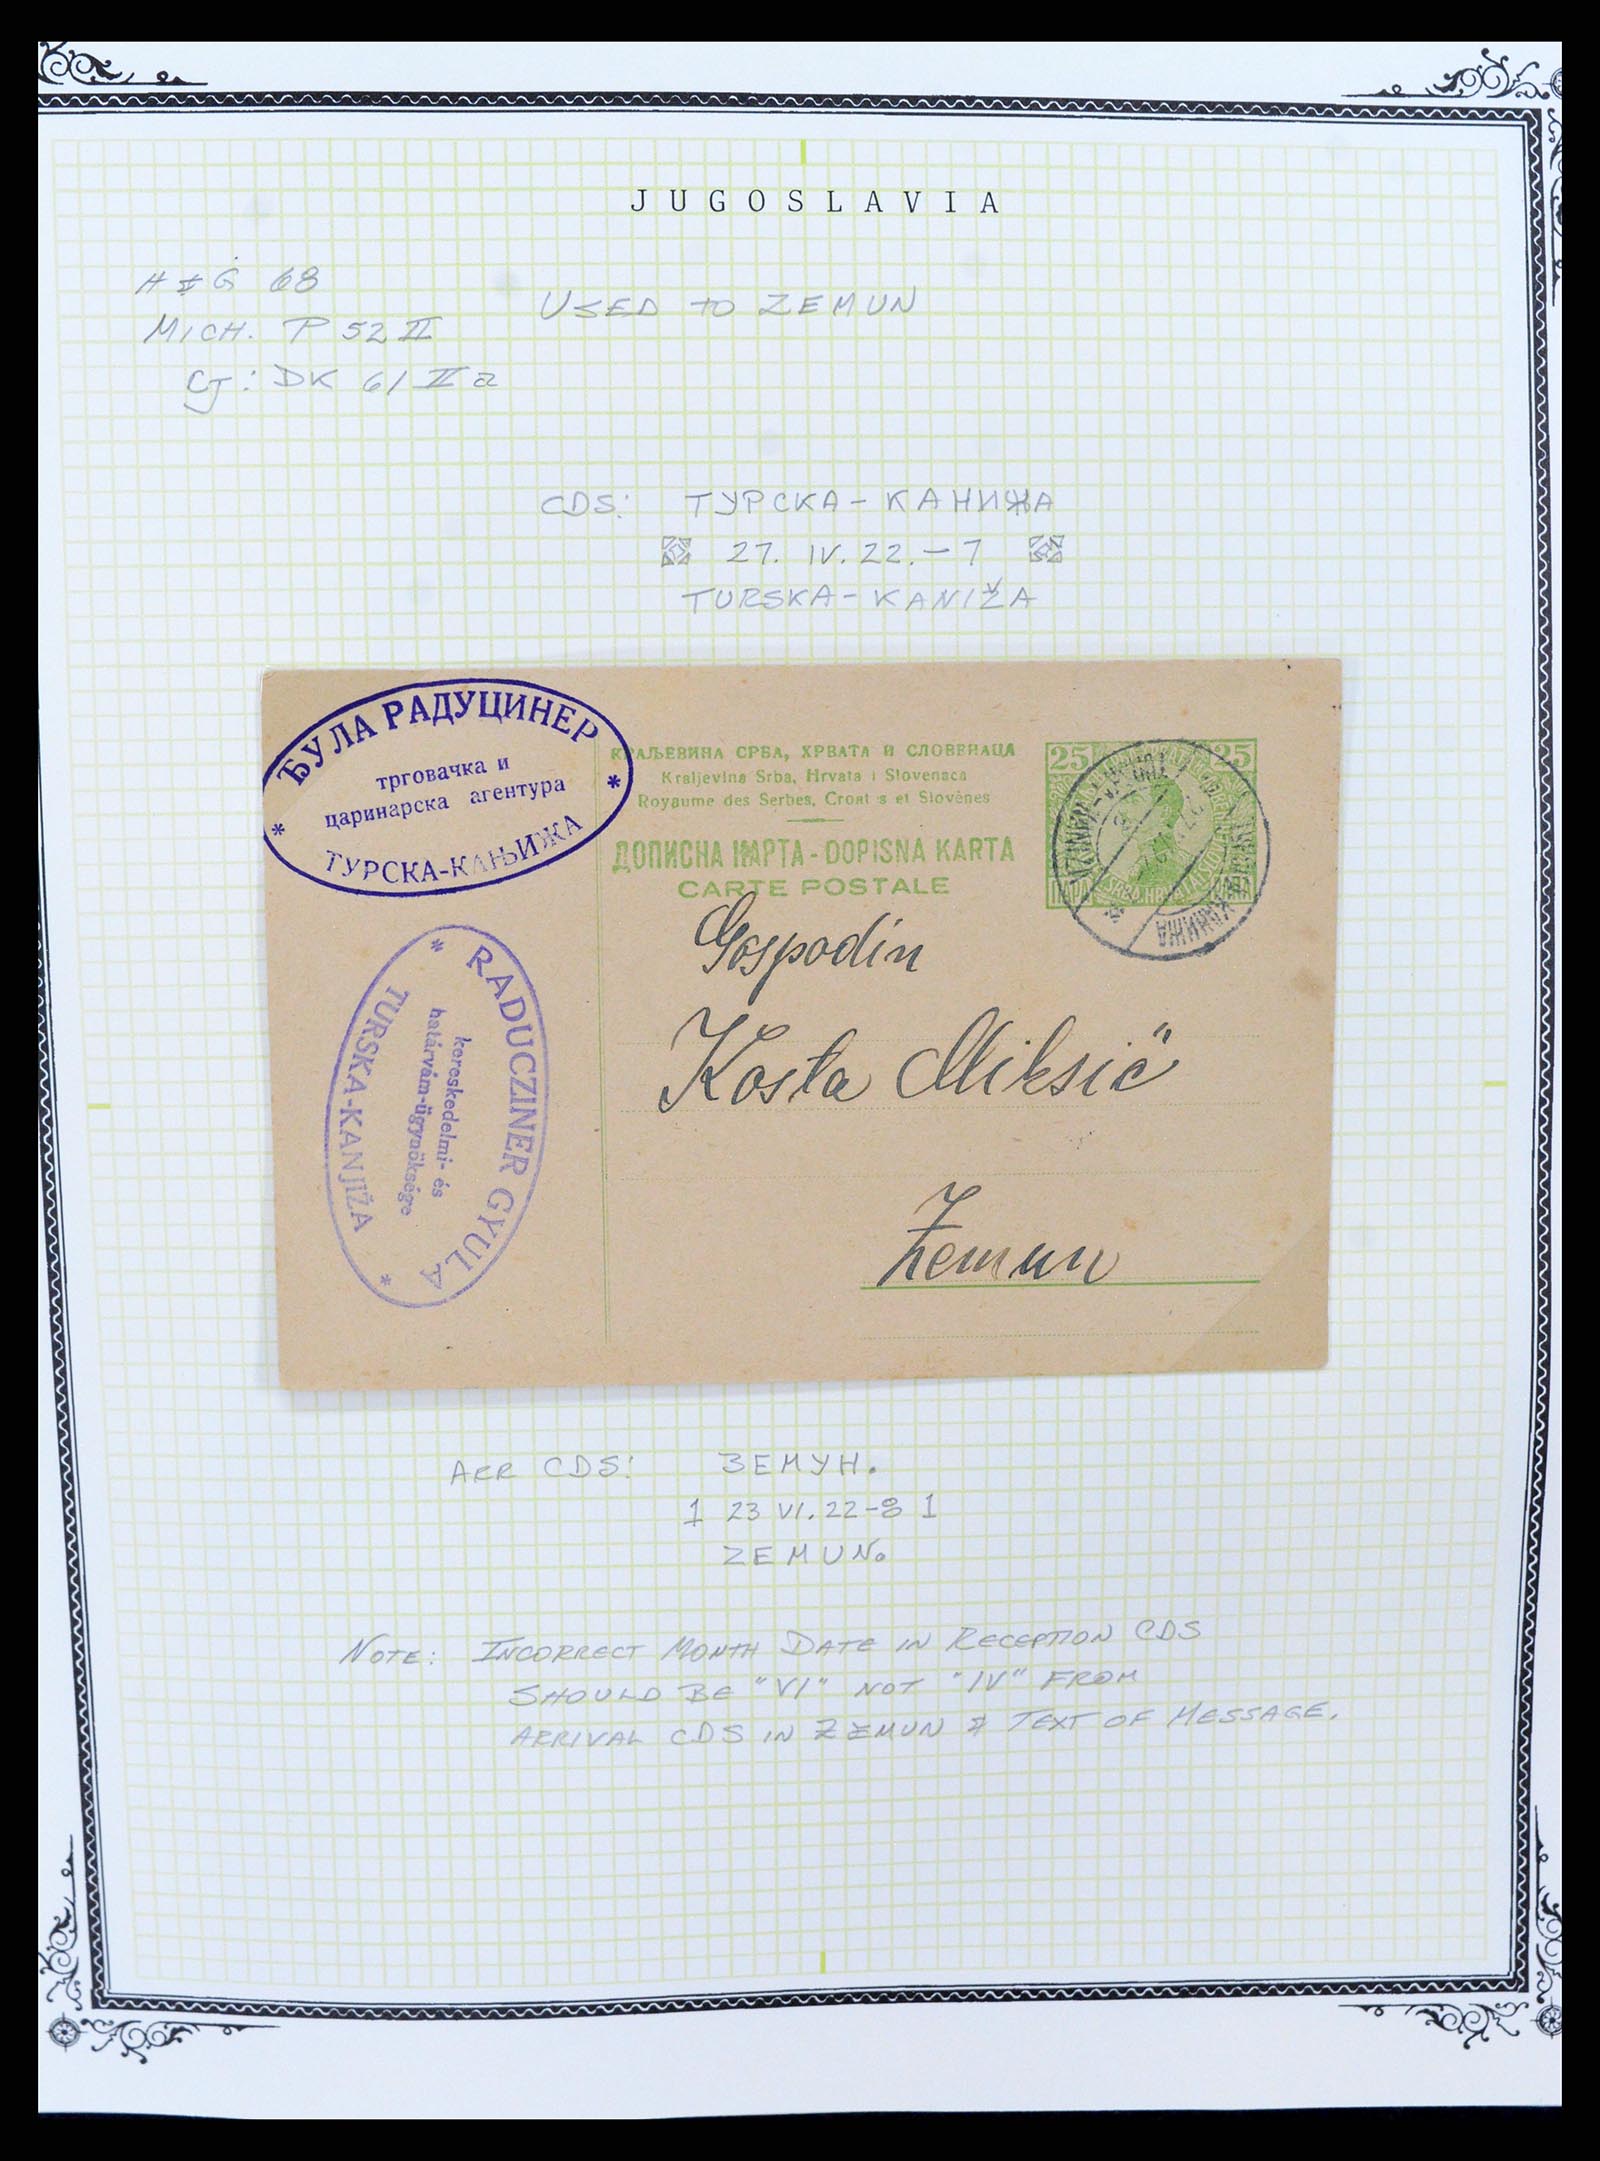 JUGOSLAVIA
H & G 68
MICH. P 52 II
CJ: DK 61 II a
USED TO ZEMUN
CDS: ТУРСКА-КАНИЖА
27. IV. 22.-7
TURSKA-KANIŽA
ЂУЛА РАДУЦИНЕР
трговачка и
царинарска агентура
* ТУРСКА-КАЊИЖА *
RADUCZINER GYULA
kereskedelmi- és
határvám-ügynöksége
* TURSKA-KANJIŽA *
КРАЉЕВИНА СРБА, ХРВАТА И СЛОВЕНАЦА
Kraljevina Srba, Hrvata i Slovenaca
Royaume des Serbes, Croates et Slovènes
ДОПИСНА КАРТА - DOPISNA KARTA
CARTE POSTALE
25 25
ПАРА PARA
КАНИЖА
Gospodin
Kosta Miksić
Zemun
ARR CDS: ЗЕМУН.
1 23 VI. 22-8 1
ZEMUN.
NOTE: INCORRECT MONTH DATE IN RECEPTION CDS
SHOULD BE "VI" NOT "IV" FROM
ARRIVAL CDS IN ZEMUN & TEXT OF MESSAGE.